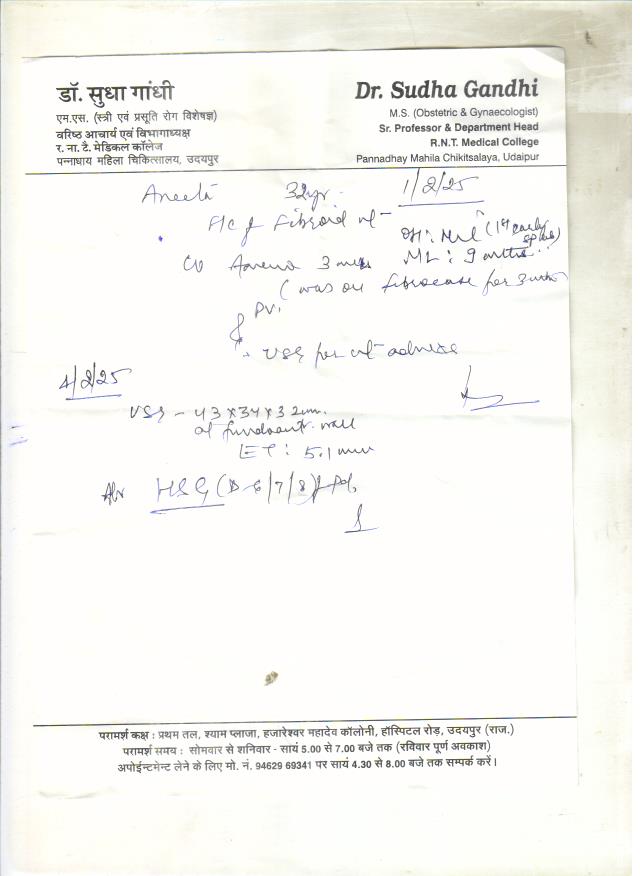 डॉ. सुधा गांधी
एम.एस. (स्त्री एवं प्रसूति रोग विशेषज्ञ)
वरिष्ठ आचार्य एवं विभागाध्यक्ष
र. ना. टै. मेडिकल कॉलेज
पन्नाधाय महिला चिकित्सालय, उदयपुर
Dr. Sudha Gandhi
M.S. (Obstetric & Gynaecologist)
Sr. Professor & Department Head
R.N.T. Medical College
Pannadhay Mahila Chikitsalaya, Udaipur
32yr. 1/2/25
Fibroid
OH: Nil (1st early
ML: 9 mths
3 mths
(was on fibrocease for 3 mths
PV.
USG per
4/2/25
USG - 43x34x32mm.
at fundo wall
ET: 5.1 mm
Adv HSG (D-6/7/8)
परामर्श कक्ष : प्रथम तल, श्याम प्लाजा, हजारेश्वर महादेव कॉलोनी, हॉस्पिटल रोड़, उदयपुर (राज.)
परामर्श समय : सोमवार से शनिवार - सायं 5.00 से 7.00 बजे तक (रविवार पूर्ण अवकाश)
अपोईन्टमेन्ट लेने के लिए मो. नं. 94629 69341 पर सायं 4.30 से 8.00 बजे तक सम्पर्क करें।